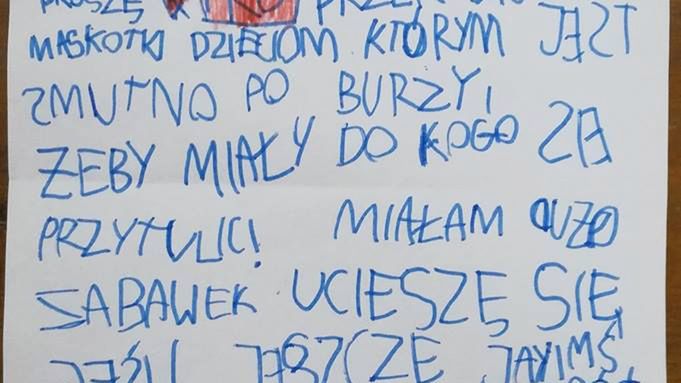 PROSZĘ
MASKOTKI DZIECIOM KTÓRYM JEST
SMUTNO PO BURZY,
ŻEBY MIAŁY DO KOGO SIĘ
PRZYTULIĆ! MIAŁAM DUŻO
SABAWEK UCIESZĘ SIĘ
JEŚLI JESZCZE JAKIMŚ